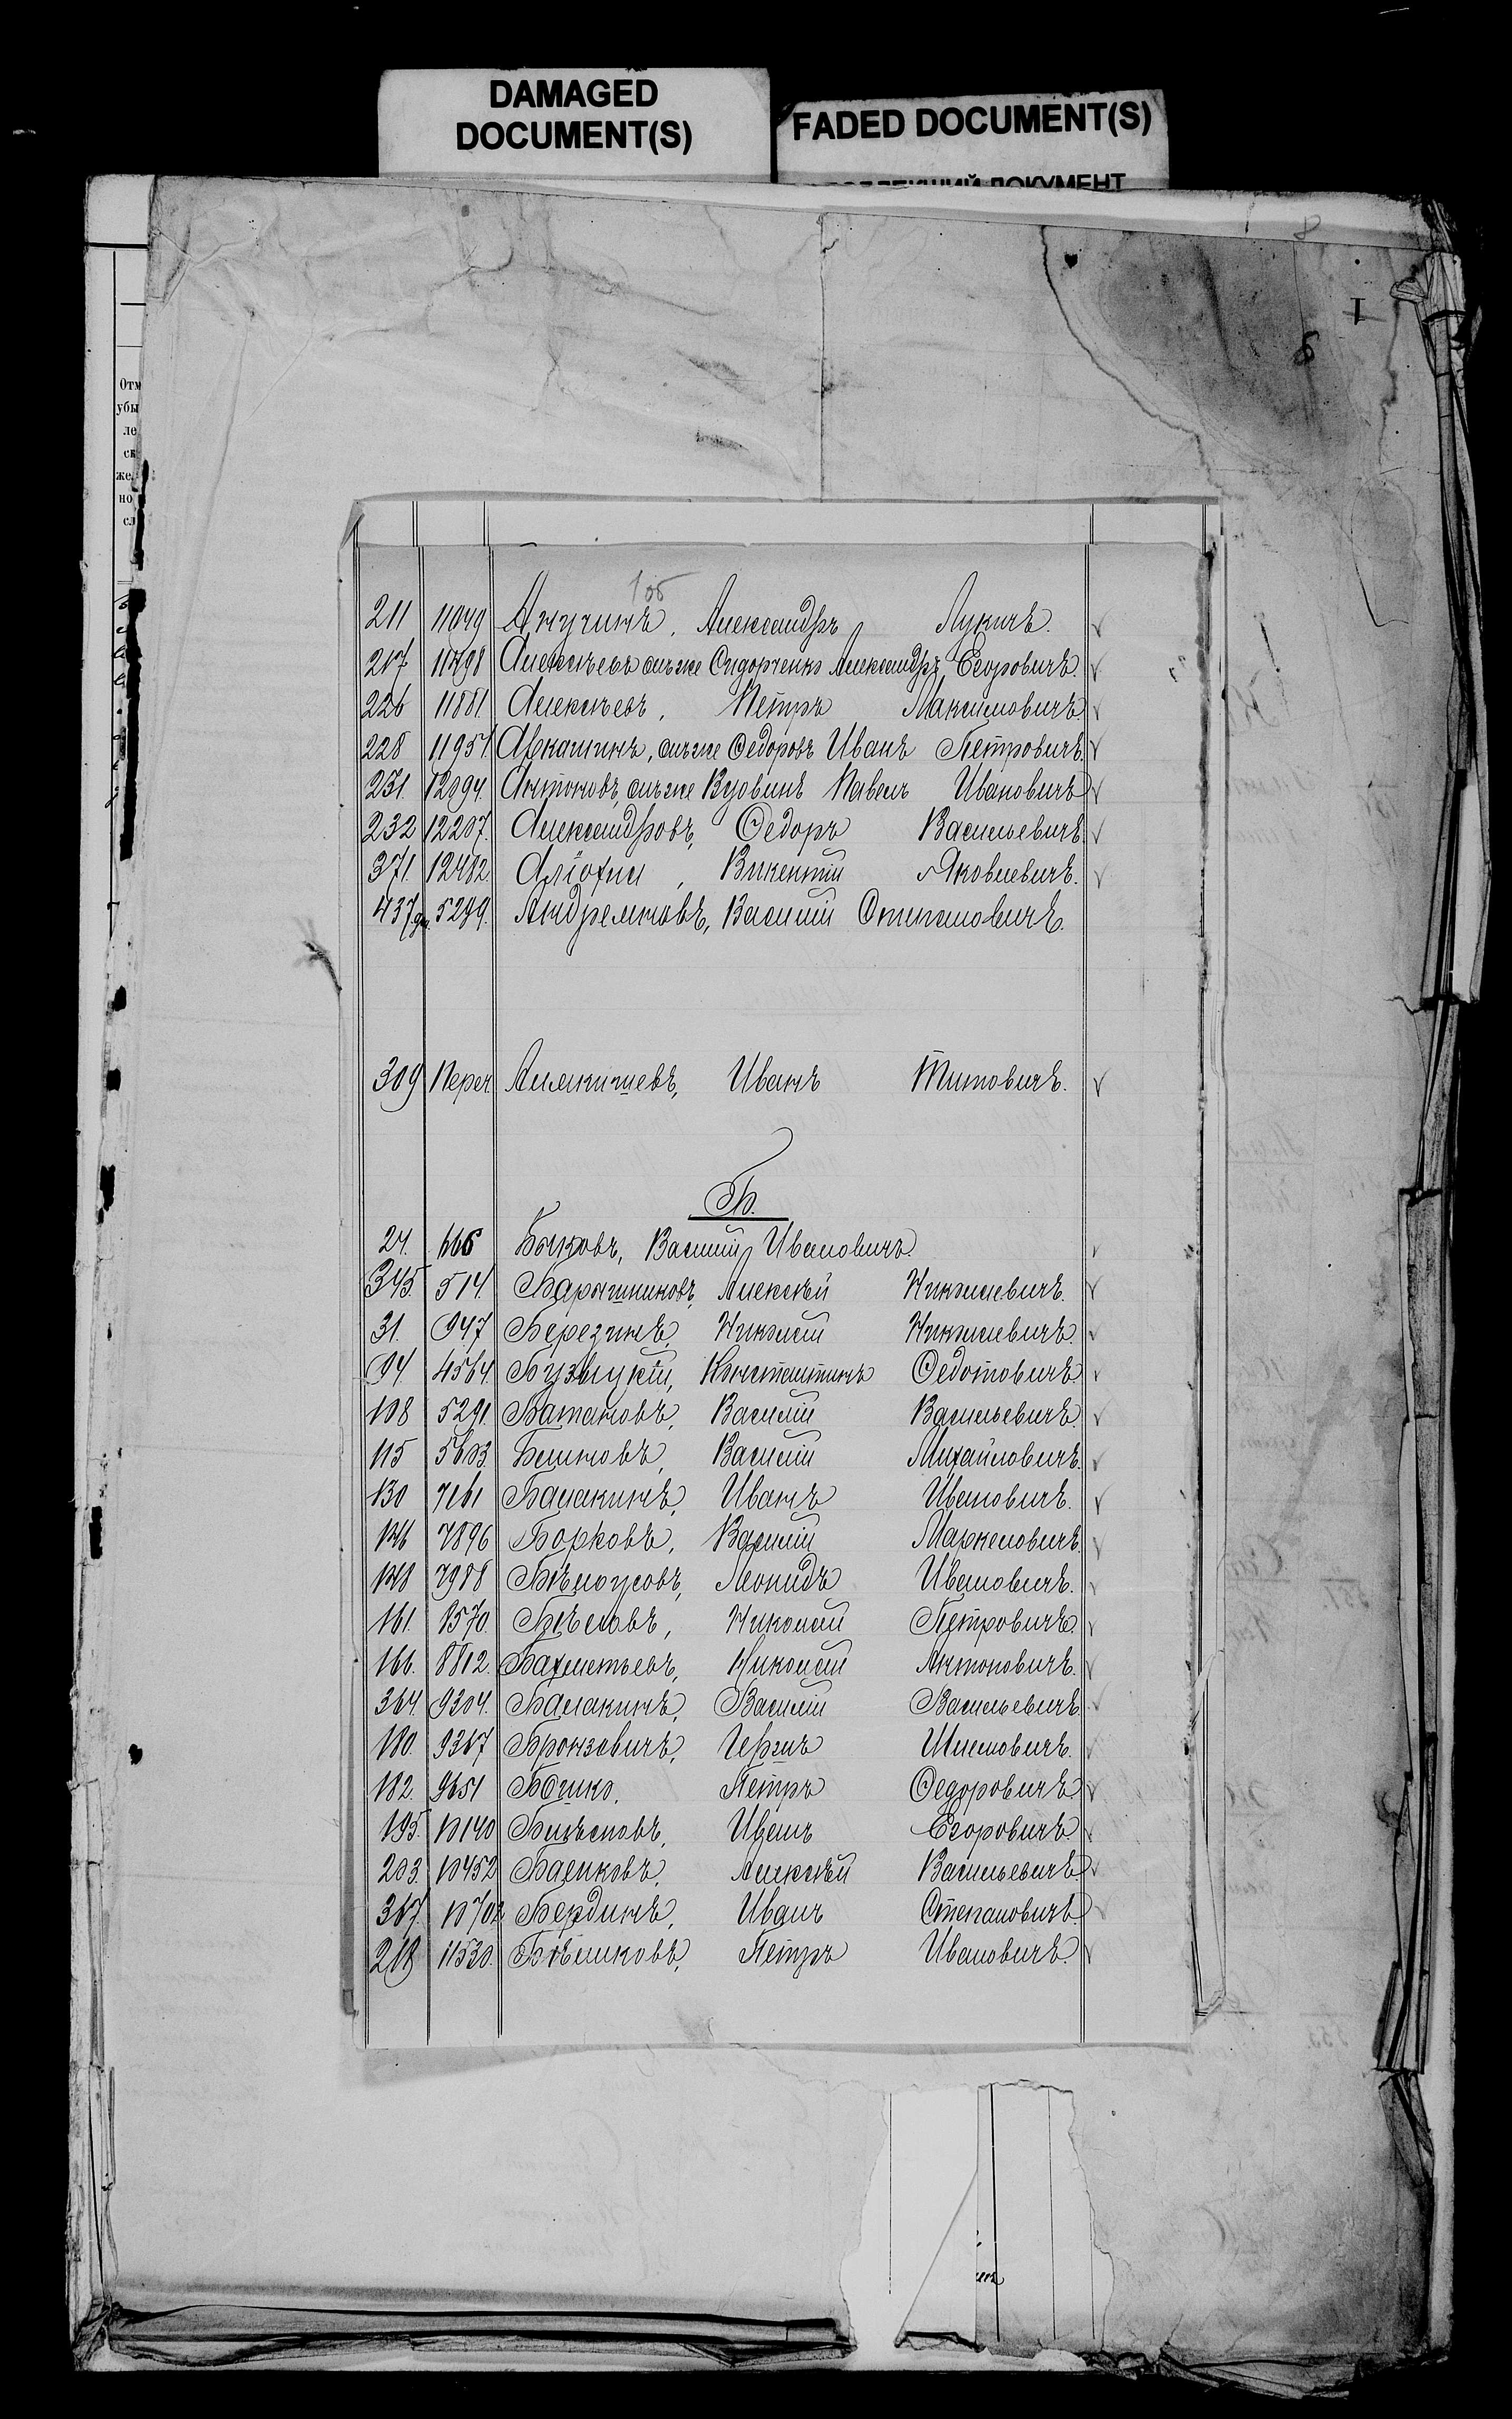 DAMAGED
DOCUMENT(S)
FADED DOCUMENT(S)
ДОКУМЕНТ
8
1
8
Отм
убы
ле
ск
же
но
сл
1об
211 11049 Анучинъ, Александръ Лукичъ.
217 11498 Алексѣевъ онъ же Сидорченко Александръ Егоровичъ.
226 11881 Алексѣевъ, Петръ Максимовичъ
228 11951 Авкашинъ, онъ же Федоровъ Иванъ Петровичъ.
231. 12094. Антоновъ, онъ же Вдовинъ Павелъ Ивановичъ
232 12207. Александровъ, Федоръ Васильевичъ.
371. 12482. Викентій Яковлевичъ.
437 5299. Андреяновъ, Василій Степановичъ.
309 Переч. Алякишевъ, Иванъ Титовичъ.
Б.
24. 666 Бычковъ, Василій Ивановичъ.
345. 514. Барышниковъ, Алексѣй Николаевичъ.
31. 947 Березинъ, Николай Николаевичъ.
94 4564. Бузвлуцкій, Константинъ Федотовичъ.
108 5291. Батановъ, Василій Васильевичъ.
115 5603. Василій Михайловичъ.
130 7161 Балакинъ, Иванъ Ивановичъ.
146 7896 Борковъ, Василій Маркеловичъ.
148 7988 Бѣлоусовъ, Леонидъ Ивановичъ.
161. 8570. Бѣловъ, Николай Петровичъ.
166. 8812. Бахметьевъ, Николай Антоновичъ.
364. 9304. Балакинъ, Василій Васильевичъ.
180. 9367 Бронзовичъ,
182. 9651 Петръ Федоровичъ
195. 10140 Иванъ Егоровичъ.
203. 10452 Алексѣй Васильевичъ.
367. 10702 Бердинъ, Иванъ Степановичъ.
218 11530. Петръ Ивановичъ.